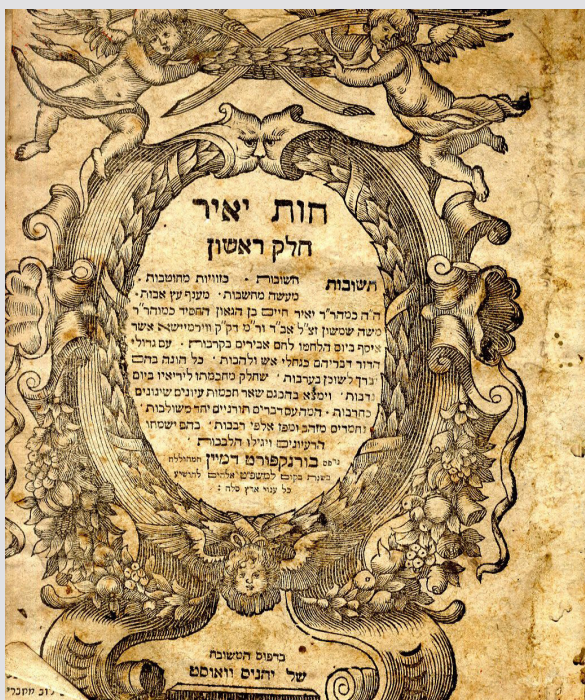 חות יאיר
חלק ראשון
תשובות חשובות · כזויות מחוטבות ·
מעשה מחשבות · מענף עץ אבות ·
ה"ה כמהר"ר יאיר חיים בן הגאון החסיד כמוהר"ר
משה שמשון זצ"ל אב"ד ור"מ דק"ק ווירמיישא אשר
איסף ביום הלחמו לחם אבירים בקרבות · עם גדולי
הדור דבריהם כגחלי אש ולהבות · כל הוגה בהם
יברך לשוכן בערבות · שחלק מחכמתו ליריאיו ביום
קרבות · וימצא בהבנם שאר חכמות עיונים שינונים
כחרבות · המה עם דברים תורניים יחד משולבות ·
נחמדים מזהב ומפז אלפי רבבות · בהם ישמחו
הרעיונים ויגילו הלבבות ·
נדפס בורנקפורט דמיין המהוללה
בשנת בקום למשפט אלהים להושיע
כל ענוי ארץ סלה :
בדפוס המשובח
של יהניס וואוסט